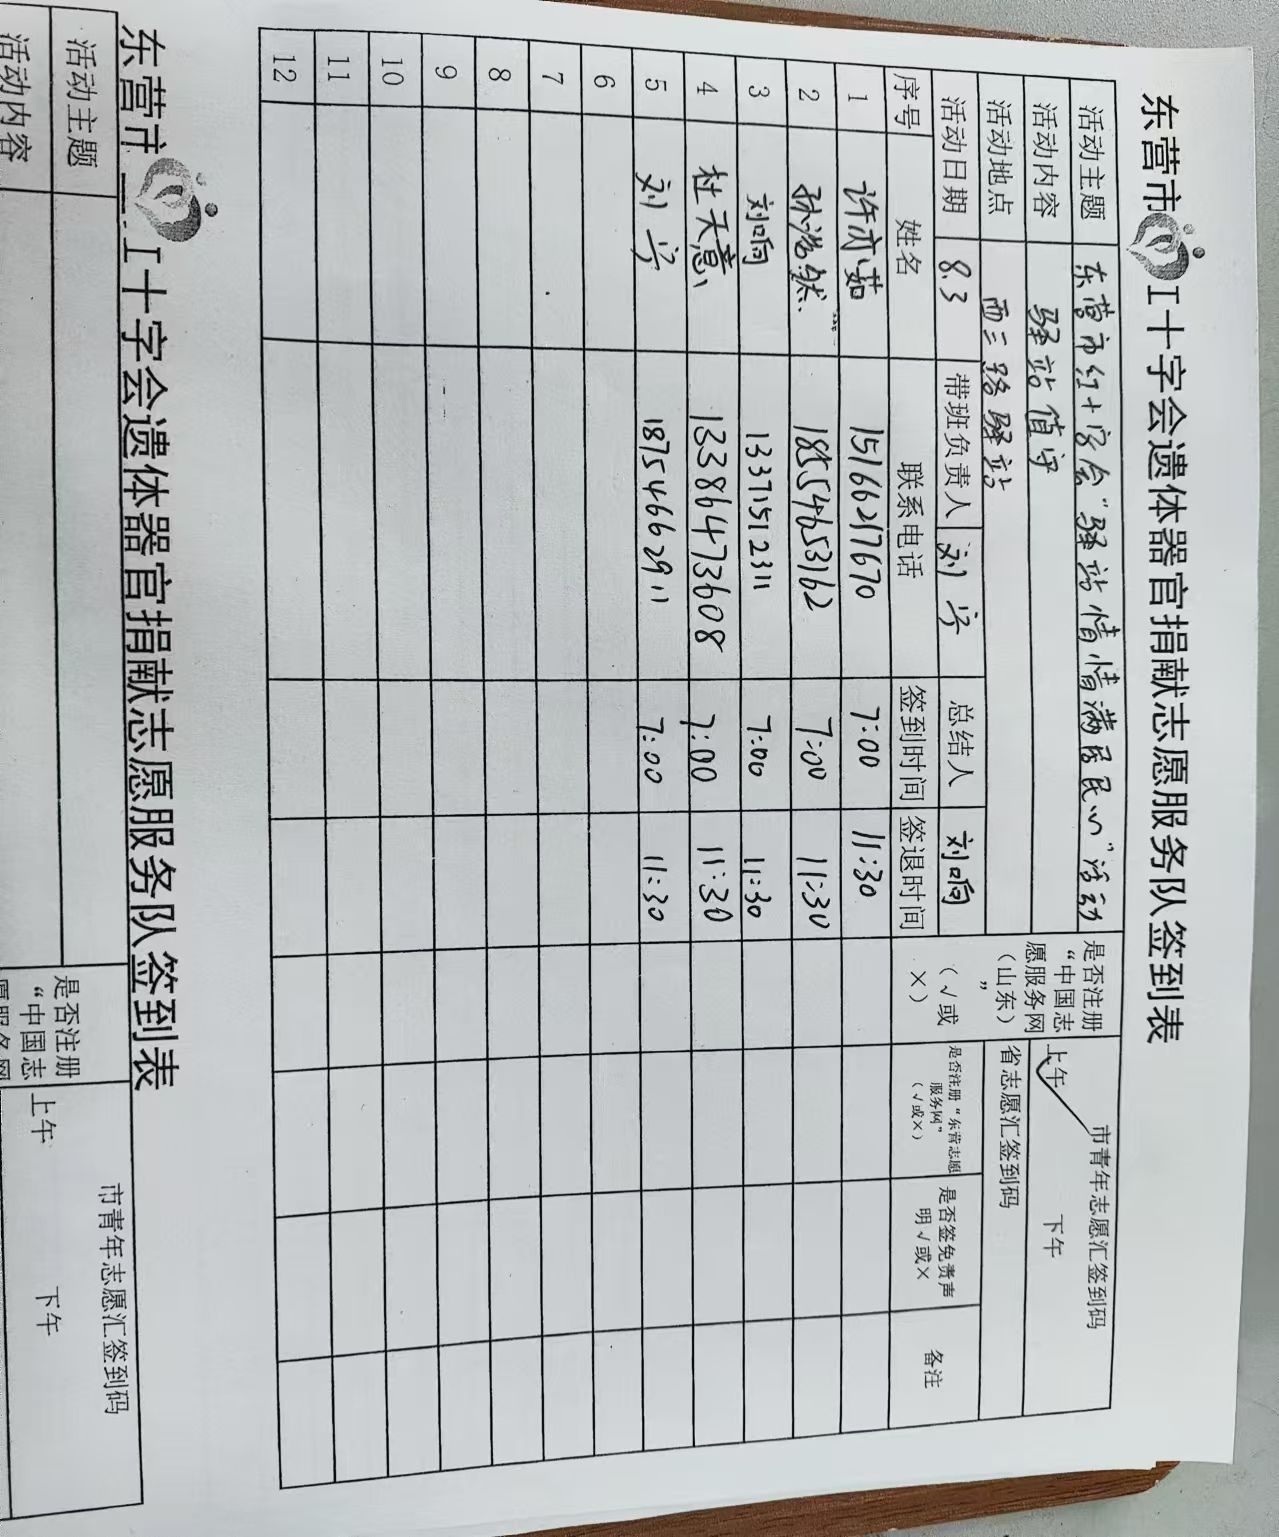 东营市红十字会遗体器官捐献志愿服务队签到表
活动主题 东营市红十字会“驿站情情满居民心”活动 是否注册“中国志愿服务网（山东）” （√或×） 市青年志愿汇签到码
活动内容 驿站值守 上午 下午
活动地点 西三路驿站 省志愿汇签到码
活动日期 8.3 带班负责人 刘 总结人 刘响
序号 姓名 联系电话 签到时间 签退时间 是否注册“东营志愿服务网”（√或×） 是否签免责声明√或× 备注
1 许 茹 15166217670 7:00 11:30
2 孙浩然 18554653162 7:00 11:30
3 刘响 13371512311 7:00 11:30
4 杜天意 13386473608 7:00 11:30
5 刘 18754662911 7:00 11:30
6
7
8
9
10
11
12
东营市 十字会遗体器官捐献志愿服务队签到表
活动主题 是否注册“中国志愿服务网 市青年志愿汇签到码
活动内容 上午 下午